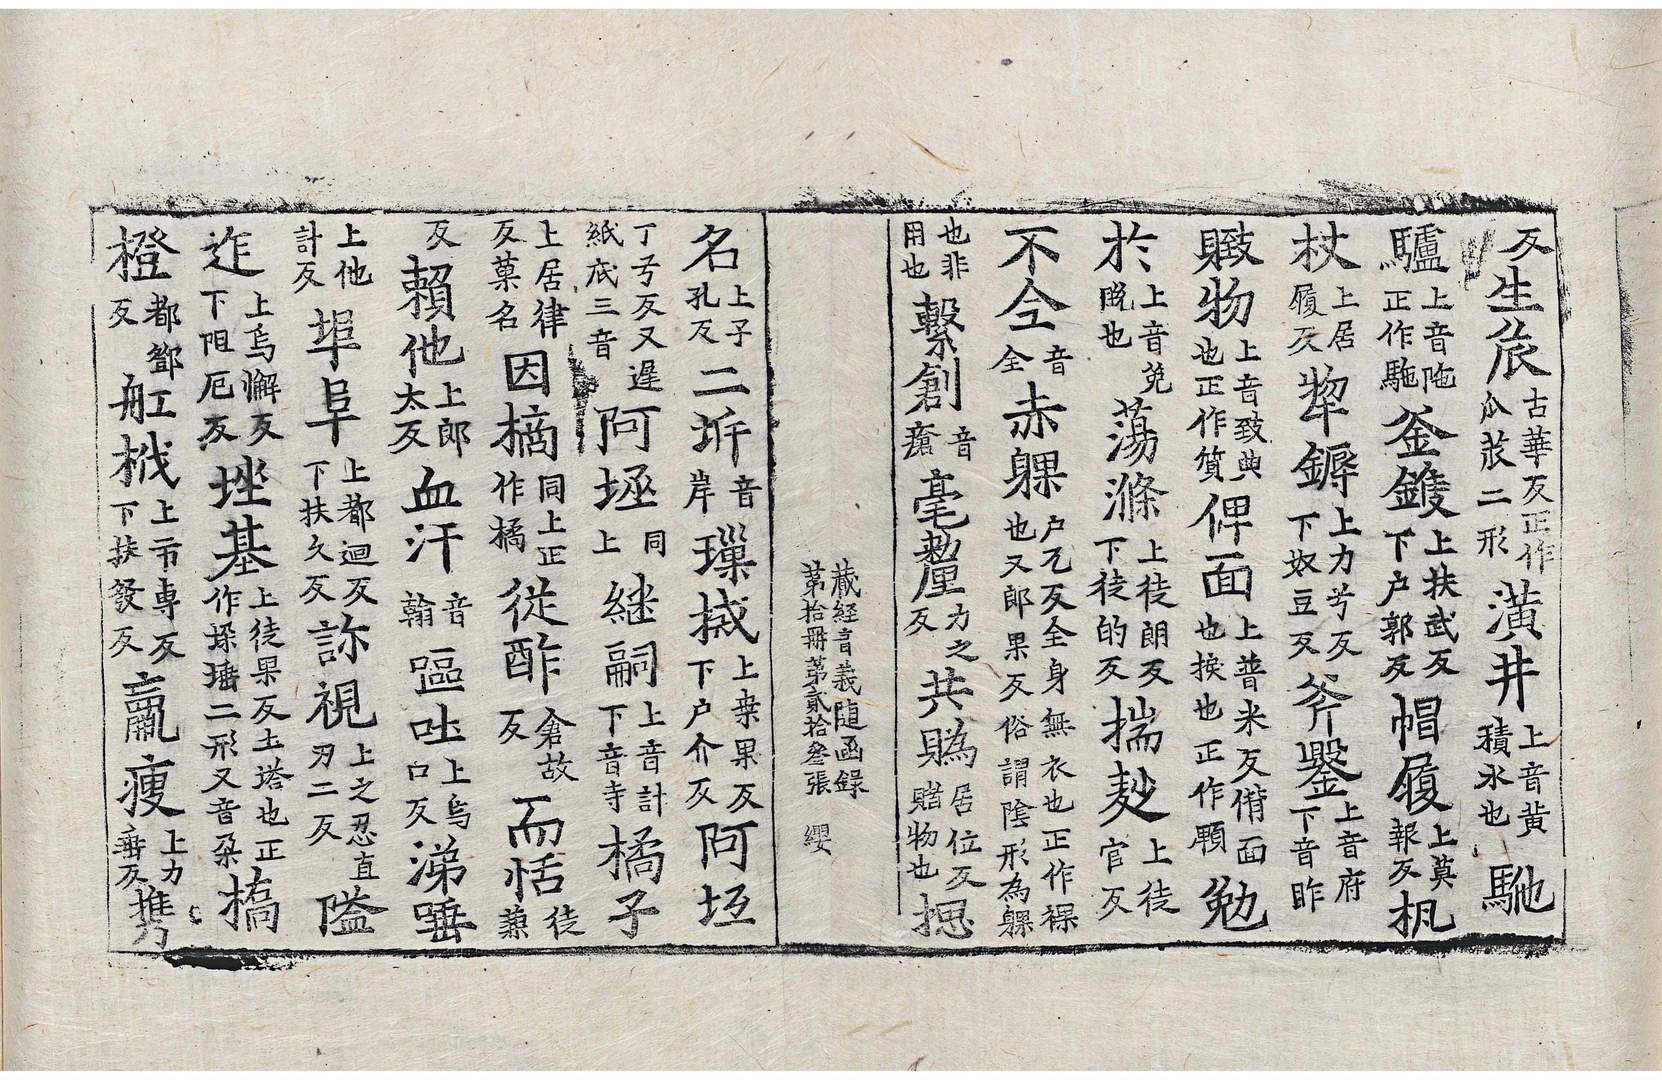 反生㡳古華反正作瓜㡳二形潢井上音黄積水也馳
驢上音陁正作駞釜鑊上扶武反下户郭反帽履上莫報反机
杖上居履反犂鎒上力兮反下奴豆反斧鑿上音府下音昨
贁物上音致典也正作質俾面上普米反俻面也挨也正作頼勉
扵上音免脫也蕩滌上徒朗反下徒的反揣上徒官反
不仝音全赤躶户瓦反全身無衣也正作裸也又郎果反俗謂陰形為躶
也非用也繫創音瘡毫釐力之反共賜居位反賭物也揌
藏経音義随函録第拾冊第貳拾叄張 纓
名上子孔反二㘸音岸璅械上桒果反下户介反阿坻
丁兮反又遲紙底三音阿坻同上継嗣上音計下音寺橘子
上居律反菓名因樀同上正作橘從酢倉故反而恬徒蒹
反頼他上郎太反血汗音翰嘔吐上烏口反涕唾
上他計反堆阜上都迴反下扶久反診視上之忍直刃二反隘
迮上烏懈反下阻厄反埵基上徒果反土塔也正作垛墦二形又音朶橋
橙都鄧反舡栰上市専反下扶發反羸瘦上力垂反㩗